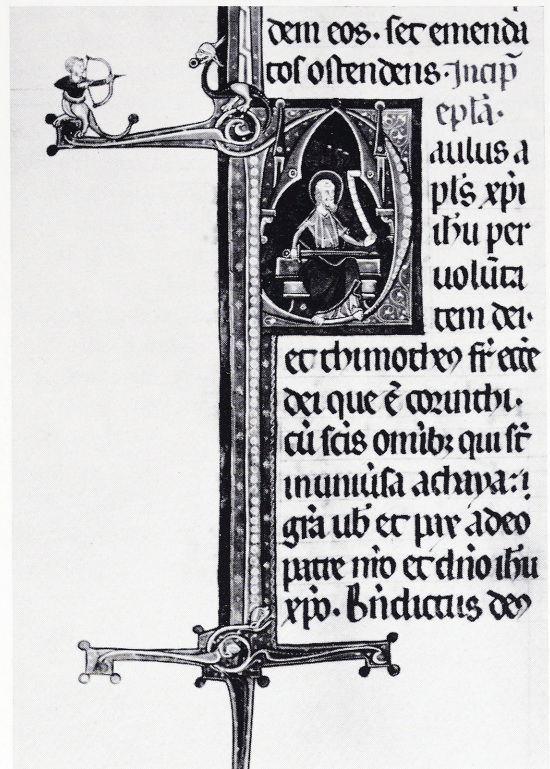 dem eos. set emenda
tos ostendens. Incip̄
ep̄la.
aulus a
pl̄s xp̄i
ih̄u per
uolūta
tem dei.
et thimotheꝰ fr̄ eccē
dei que ē corinthi.
cū sc̄is om̄ibꝫ qui st̄
in uniūsa achaya: ı
gr̄a ub̄ et pax a deo
patre nr̄o et dn̄o ih̄u
xp̄o. Bn̄dictus deꝰ